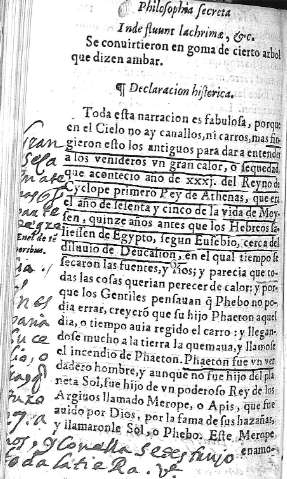 Philosophia secreta
Inde fluunt lachrimæ, &c.
Se conuirtieron en goma de cierto arbol
que dizen ambar.
¶ Declaracion historica.
Toda esta narracion es fabulosa, porque
en el Cielo no ay cauallos, ni carros, mas fin
gieron esto los antiguos para dar a entender
a los venideros vn gran calor, o sequedad,
que acontecio año de xxxj. del Reyno de
Cyclope primero Rey de Athenas, que en
el año de sesenta y cinco de la vida de Moy-
sen, quinze años antes que los Hebreos sa-
liessen de Egypto, segun Eusebio, cerca del
diluuio de Deucalion, en el qual tiempo se
secaron las fuentes, y rios; y parecia que to-
das las cosas querian perecer de calor: y por-
que los Gentiles pensauan q̃ Phebo no po-
dia errar, creyerõ que su hijo Phaeton aquel
dia, o tiempo auia regido el carro: y llegan-
dose mucho a la tierra la quemaua, y llamose
el incendio de Phaeton. Phaeton fue vn ver
dadero hombre, y aunque no fue hijo del pla
neta Sol, fue hijo de vn poderoso Rey de los
Argiuos llamado Merope, o Apis, que fue
auido por Dios, por la fama de sus hazañas,
y llamaronle Sol, o Phebo. Este Merope
enamo-
Gran
Seca
y Con ella se destruyo
toda la tieRa